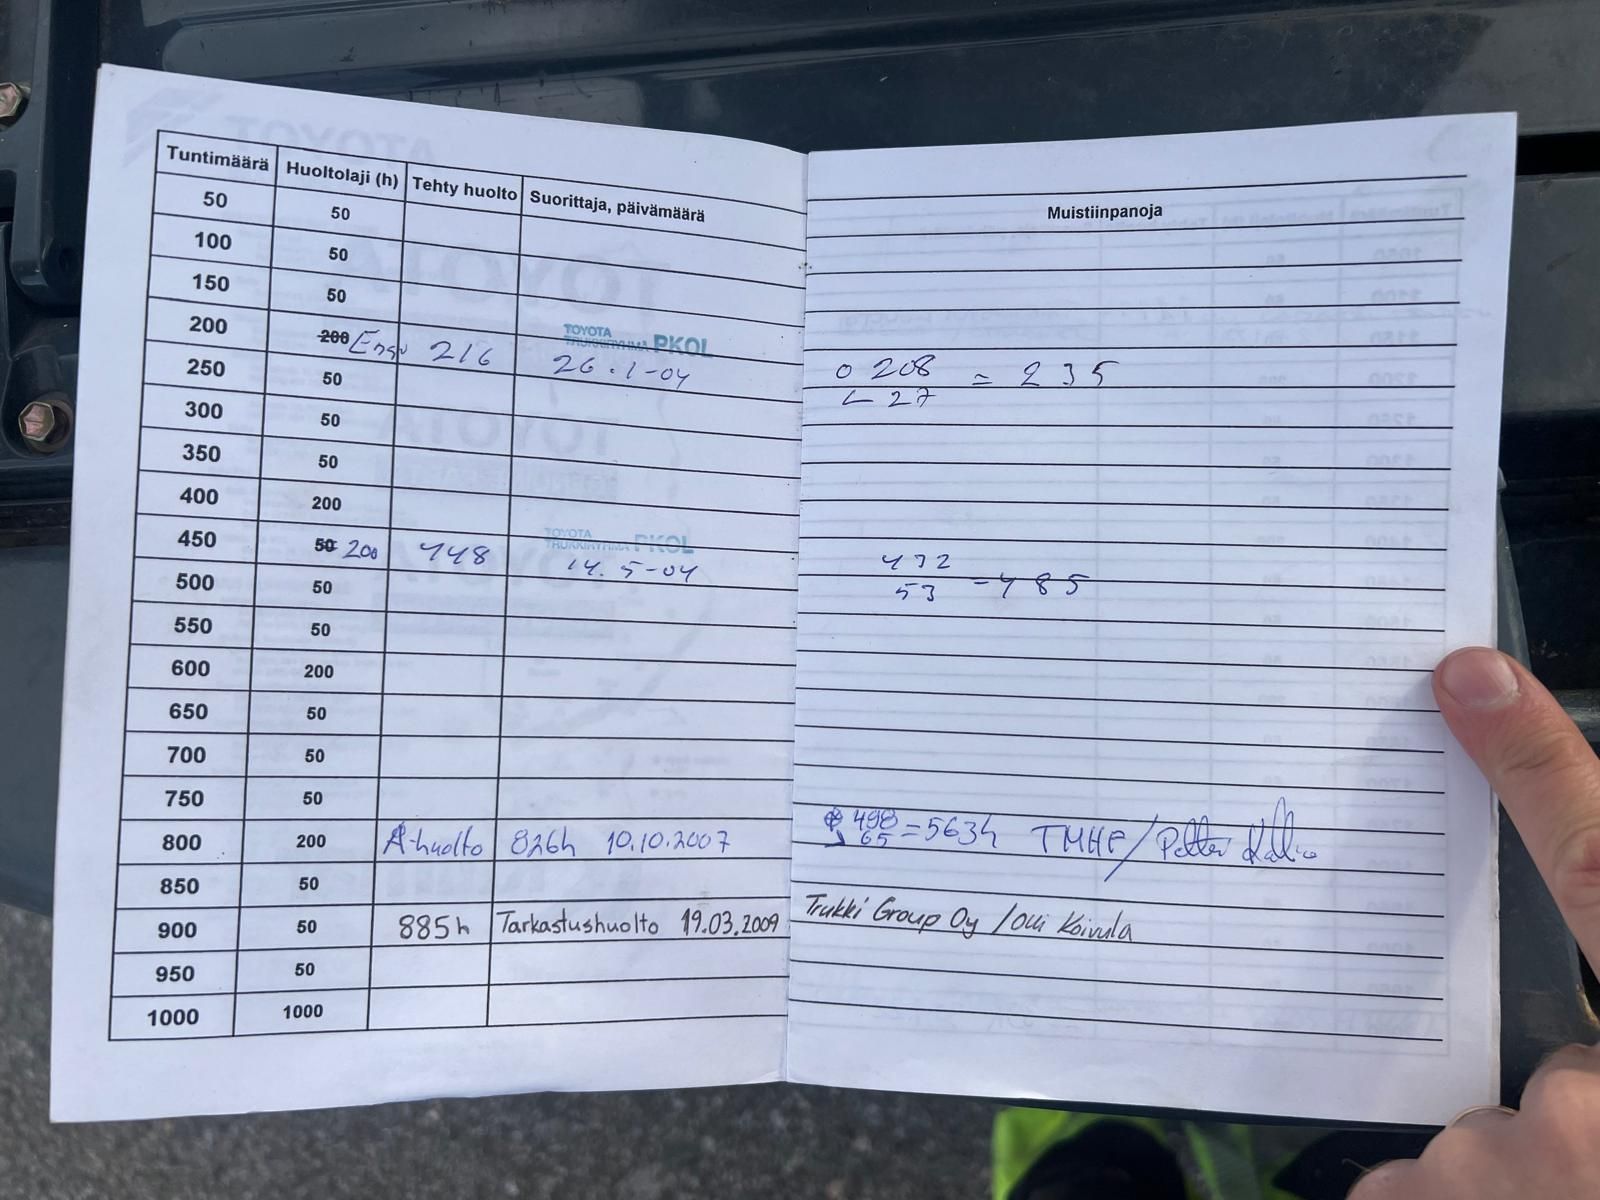 Tuntimäärä Huoltolaji (h) Tehty huolto Suorittaja, päivämäärä
50 50
100 50
150 50
200 200 216 TOYOTA TRUKKIRYHMÄ PKOL 26.1-04
250 50
300 50
350 50
400 200
450 50 200 448 TOYOTA TRUKKIRYHMÄ PKOL 14.5-04
500 50
550 50
600 200
650 50
700 50
750 50
800 200 A-huolto 826h 10.10.2007
850 50
900 50 885h Tarkastushuolto 19.03.2009
950 50
1000 1000
Muistiinpanoja
208 = 235
27
432
53 =485
498 =563h TMHF/
65
Trukki Group Oy /Olli Koivula